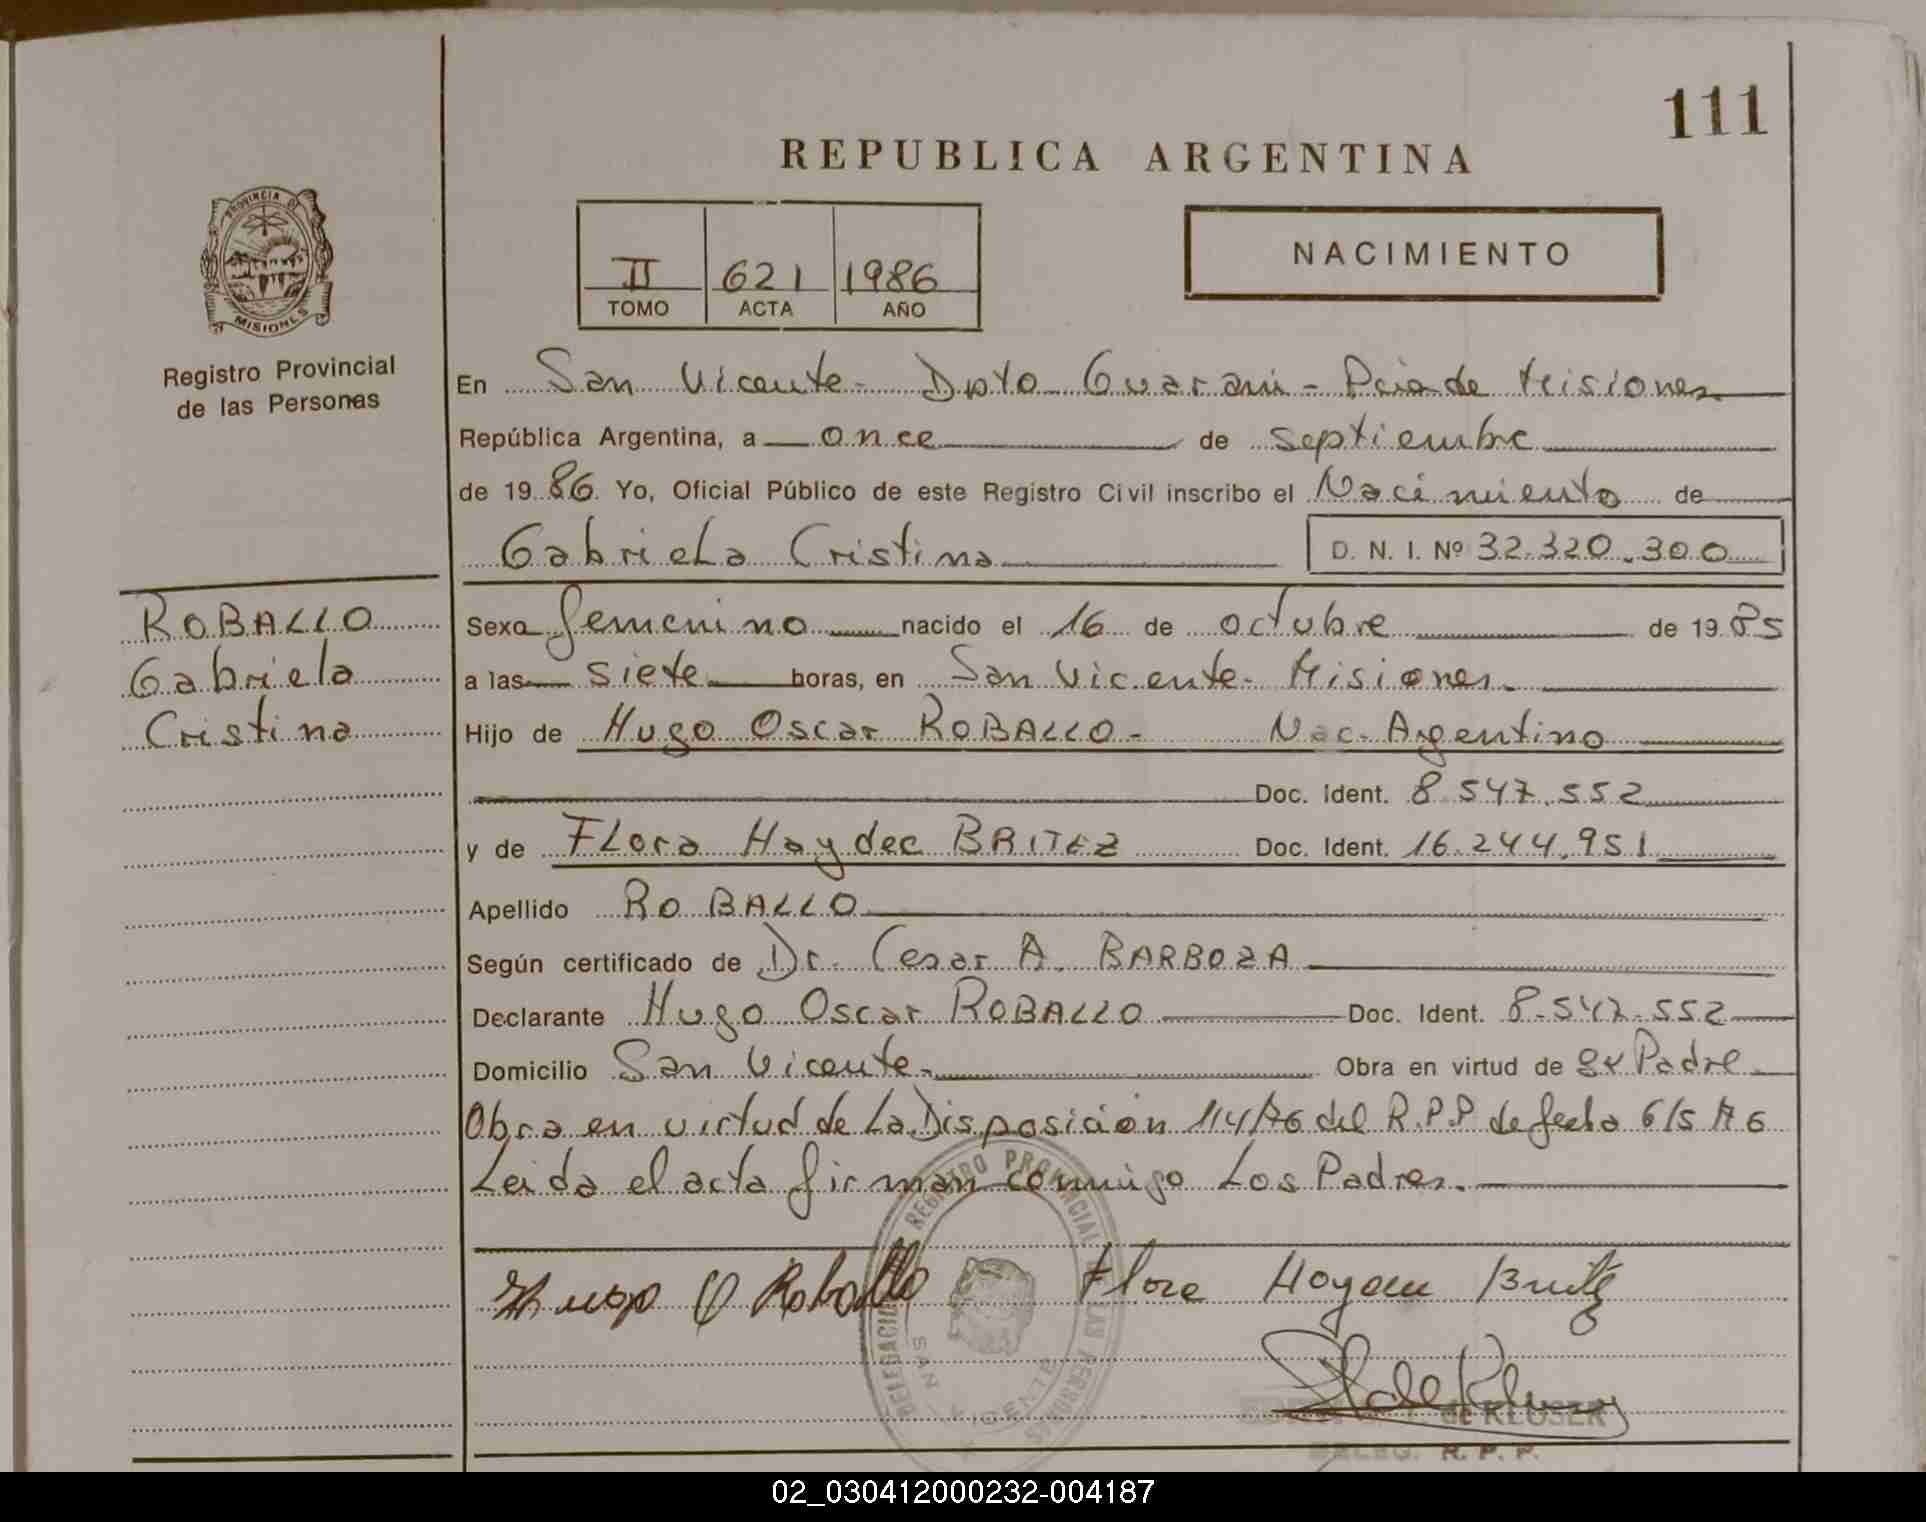 111
REPUBLICA ARGENTINA
PROVINCIA DE
MISIONES
Registro Provincial
de las Personas
II 621 1986
TOMO ACTA AÑO
NACIMIENTO
En San Vicente - Dpto Guarani - Pcia de Misiones
República Argentina, a once de septiembre
de 1986 Yo, Oficial Público de este Registro Civil inscribo el Nacimiento de
Gabriela Cristina D. N. I. Nº 32.320.300
ROBALLO
Gabriela
Cristina
Sexo femenino nacido el 16 de octubre de 1985
a las siete horas, en San Vicente - Misiones.
Hijo de Hugo Oscar ROBALLO - Nac. Argentino
Doc. Ident. 8.547.552
y de Flora Haydee BRITEZ Doc. Ident. 16.244.951
Apellido ROBALLO
Según certificado de Dr. Cesar A. BARBOZA
Declarante Hugo Oscar ROBALLO Doc. Ident. 8.547.552
Domicilio San Vicente. Obra en virtud de ser Padre
Obra en virtud de La Disposición 114/76 del R.P.P de fecha 6/5/76
Leida el acta firman conmigo Los Padres.
Hugo O Roballo Flora Haydee Britez
DELEGACION REGISTRO PROVINCIAL DE LAS PERSONAS
SAN VICENTE
de KLUSER
DELEG. R. P. P.
02_030412000232-004187